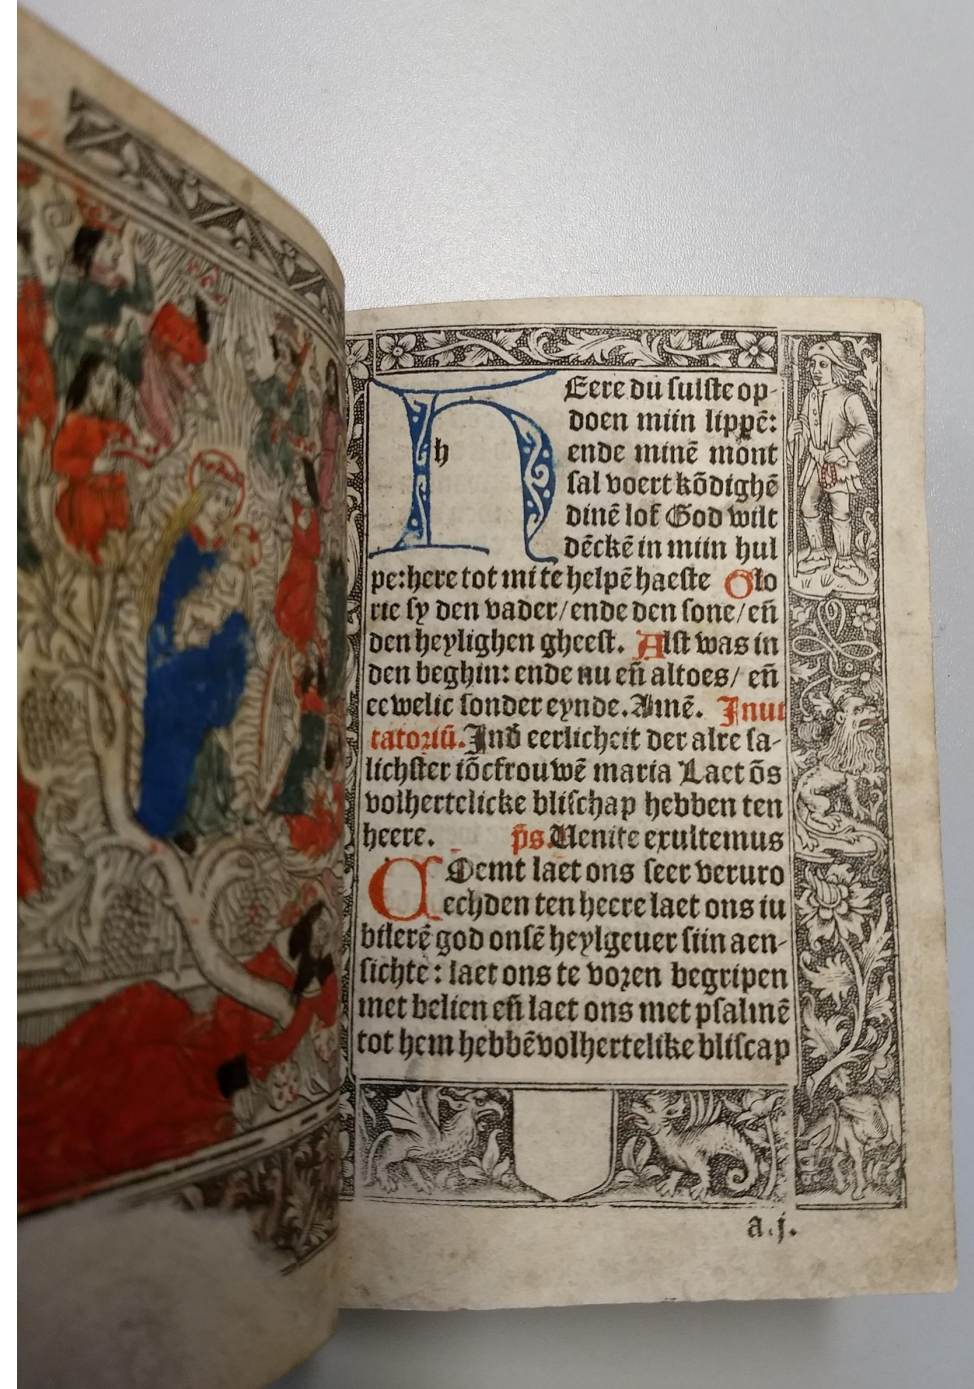 h Eere du sulste op-
doen miin lippē:
ende minē mont
sal voert kōdighē
dinē lof God wilt
dēckē in miin hul
pe:here tot mi te helpē haeste Glo
rie sy den vader/ende den sone/en̄
den heylighen gheest. Alst was in
den beghin: ende nu en̄ altoes/ en̄
eewelic sonder eynde. Amē. Inui
tatoriū. Ind eerlicheit der alre sa-
lichster iōcfrouwē maria Laet ōs
volhertelicke blischap hebben ten
heere. p̄s. Uenite exultemus
COemt laet ons seer veruro
echden ten heere laet ons iu
bilerē god onsē heylgeuer siin aen-
sichte: laet ons te vozen begripen
met belien en̄ laet ons met psalmē
tot hem hebbē volhertelike bliscap
a.j.